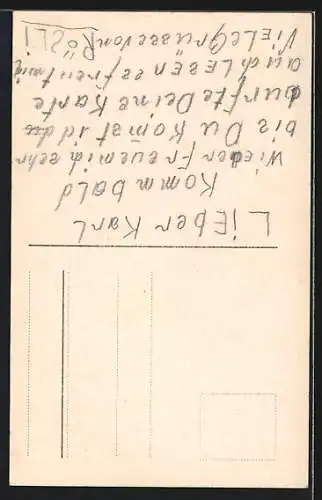 LiEber KarL
Komm bald
Wieder Freue mich sehr
bis Du Kom̄st
durfte Deine Karte
auch LESEN es freut mich
VieLe Grüsse von RÖSLI